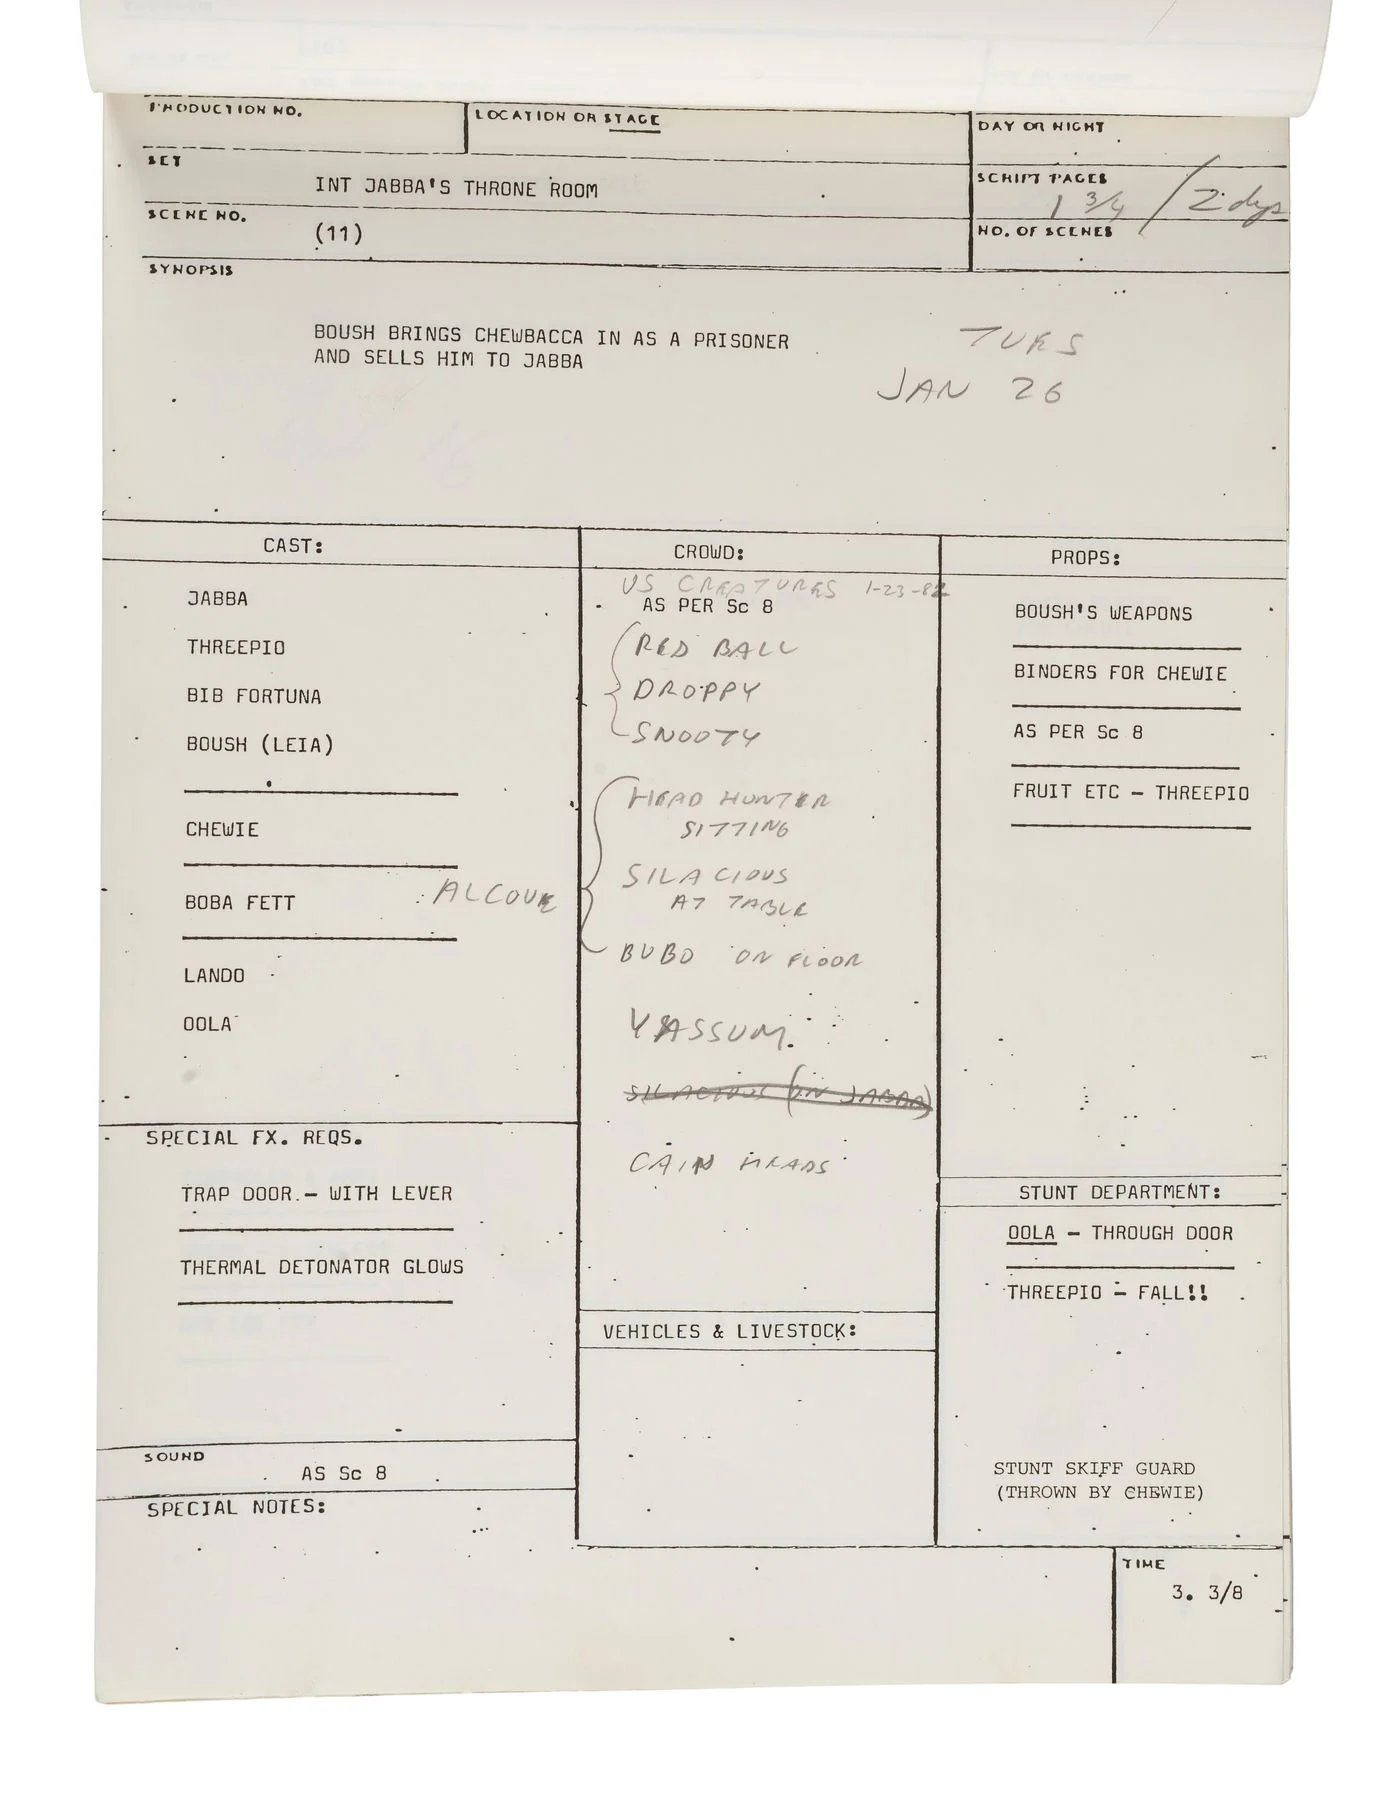 PRODUCTION NO.
LOCATION OR STAGE
DAY OR NIGHT
SET
INT JABBA'S THRONE ROOM
SCRIPT PAGES
1 3/4 / 2 dys
SCENE NO.
(11)
NO. OF SCENES
SYNOPSIS
BOUSH BRINGS CHEWBACCA IN AS A PRISONER
AND SELLS HIM TO JABBA
TUES
JAN 26
CAST:
JABBA
THREEPIO
BIB FORTUNA
BOUSH (LEIA)
CHEWIE
BOBA FETT
ALCOVE
LANDO
OOLA
CROWD:
US CREATURES 1-23-82
AS PER Sc 8
RED BALL
DROPPY
SNOOTY
HEAD HUNTER
SITTING
SILACIOUS
AT TABLE
BUBO ON FLOOR
YASSUM.
SILACIOUS (ON JABBA)
CAIN HEADS
PROPS:
BOUSH'S WEAPONS
BINDERS FOR CHEWIE
AS PER Sc 8
FRUIT ETC - THREEPIO
SPECIAL FX. REQS.
TRAP DOOR.- WITH LEVER
THERMAL DETONATOR GLOWS
VEHICLES & LIVESTOCK:
STUNT DEPARTMENT:
OOLA - THROUGH DOOR
THREEPIO - FALL!!
STUNT SKIFF GUARD
(THROWN BY CHEWIE)
SOUND
AS Sc 8
SPECIAL NOTES:
TIME
3. 3/8